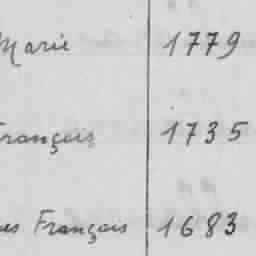 Marie 1779
François 1735
es François 1683